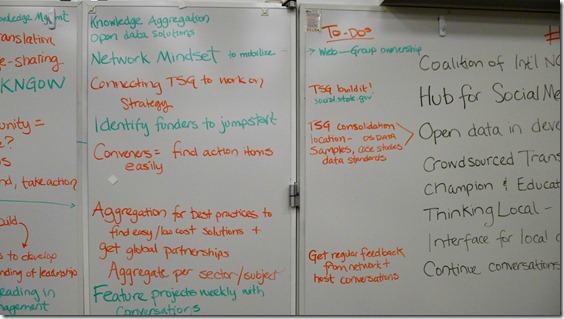 Knowledge Mgmt
translative
e-sharing
KNGOW
unity =
e?
nd, take action
build
s to develop
nding of leadership
eading in
nagement
Knowledge Aggregation
Open data solutions
Network Mindset to mobilize
Connecting TSG to work on,
Strategy
Identify funders to jumpstart
Conveners = find action items
easily
Aggregation for best practices to
find easy/low cost solutions +
get global partnerships
Aggregate per sector/subject
Feature projects weekly with
conversations
To-Dos
→ Web — Group ownership
TSG buildit!
social.state.gov
TSG consolidation
location - OS DATA
Samples, case studies
data standards
Get regular feedback
from network +
host conversations
#
Coalition of Int'l NG
Hub for Social Me
Open data in deve
Crowdsourced Trans
Champion & Educat
Thinking Local -
Interface for local c
Continue conversations